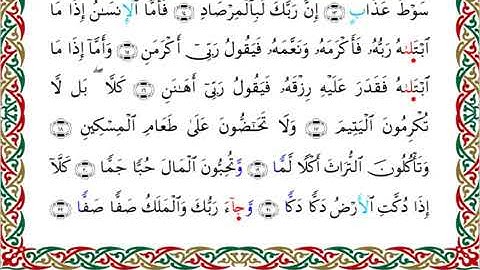 سَوْطَ عَذَابٍ ۝١٣ إِنَّ رَبَّكَ لَبِٱلْمِرْصَادِ ۝١٤ فَأَمَّا ٱلْإِنسَٰنُ إِذَا مَا
ٱبْتَلَىٰهُ رَبُّهُۥ فَأَكْرَمَهُۥ وَنَعَّمَهُۥ فَيَقُولُ رَبِّىٓ أَكْرَمَنِ ۝١٥ وَأَمَّآ إِذَا مَا
ٱبْتَلَىٰهُ فَقَدَرَ عَلَيْهِ رِزْقَهُۥ فَيَقُولُ رَبِّىٓ أَهَٰنَنِ ۝١٦ كَلَّا ۖ بَل لَّا
تُكْرِمُونَ ٱلْيَتِيمَ ۝١٧ وَلَا تَحَٰٓضُّونَ عَلَىٰ طَعَامِ ٱلْمِسْكِينِ ۝١٨
وَتَأْكُلُونَ ٱلتُّرَاثَ أَكْلًا لَّمًّا ۝١٩ وَتُحِبُّونَ ٱلْمَالَ حُبًّا جَمًّا ۝٢٠ كَلَّآ
إِذَا دُكَّتِ ٱلْأَرْضُ دَكًّا دَكًّا ۝٢١ وَجَآءَ رَبُّكَ وَٱلْمَلَكُ صَفًّا صَفًّا ۝٢٢